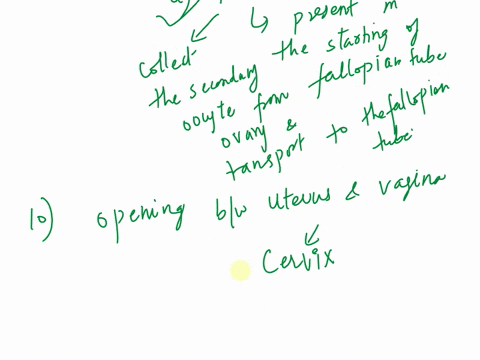 ↳ present in
collect the starting of
the secondary fallopian tube
oocyte from
ovary &
transport to the fallopian
tube
10) opening b/w uterus & vagina
Cervix